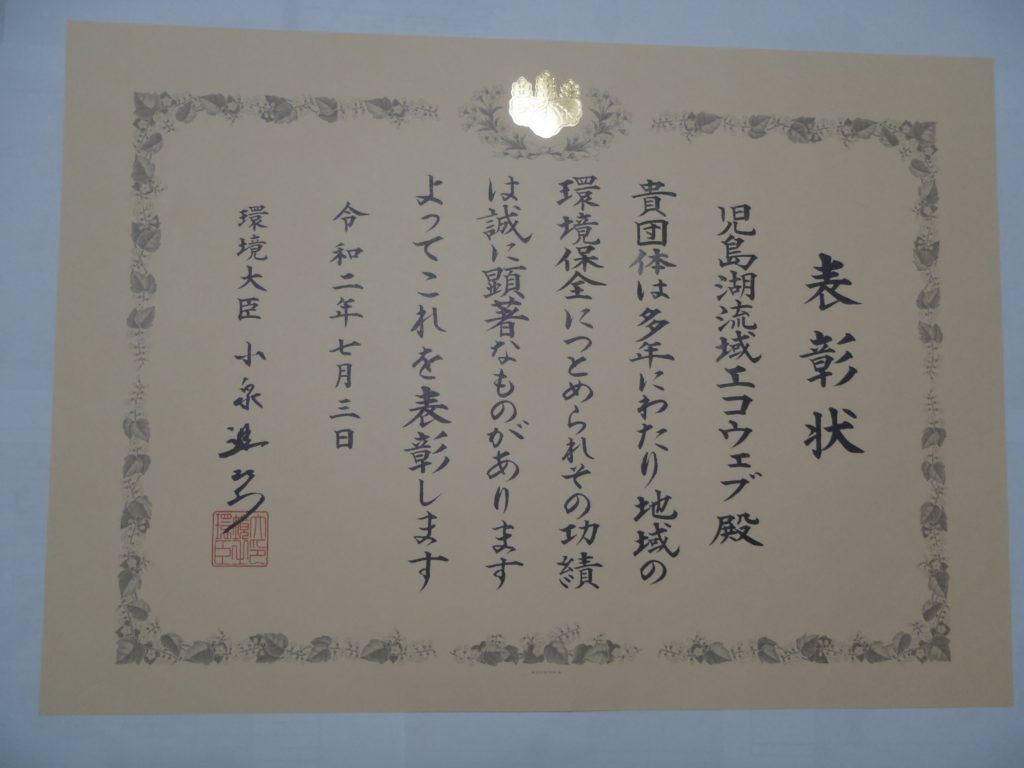 表彰状
児島湖流域エコウェブ殿
貴団体は多年にわたり地域の
環境保全につとめられその功績
は誠に顕著なものがあります
よってこれを表彰します
令和二年七月三日
環境大臣 小泉進